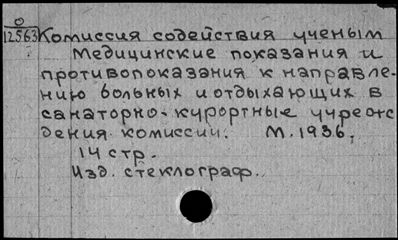 О
12563 Комиссия содействия ученым
Медицинские показания и
противопоказания к направле-
нию больных и отдыхающих в
санаторно-курортные учреж-
дения комиссии. М. 1936,
14 стр.
Изд. стеклограф.